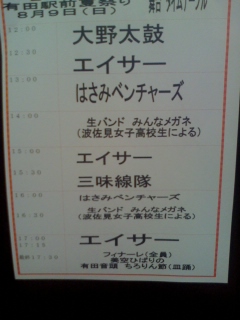 有田駅前夏祭り
8月9日(日)
舞台 タイムテーブル
12:00
大野太鼓
エイサー
はさみベンチャーズ
14:00
生バンド みんなメガネ
(波佐見女子高校生による)
15:00
エイサー
15:30
三味線隊
16:00
はさみベンチャーズ
16:30
生バンド みんなメガネ
(波佐見女子高校生による)
17:00
エイサー
フィナーレ(全員)
美空ひばりの
有田音頭 ちろりん節(皿踊)